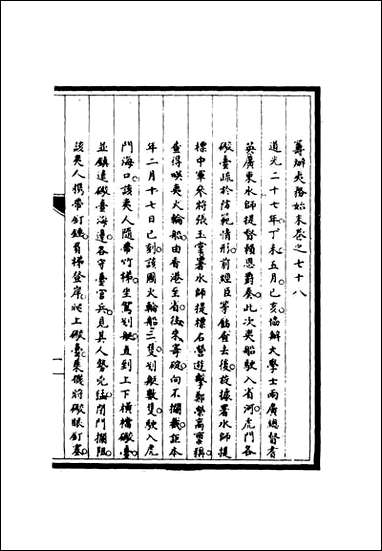 籌辦夷務始末卷之七十八
道光二十七年丁未五月己亥協辦大學士兩廣總督耆
英廣東水師提督賴恩爵奏此次夷船駛入省河虎門各
礮臺疏於防範情形前經臣等飭查去後茲據署水師提
標中軍參將張玉堂署水師提標右營遊擊鄭榮高稟稱
查得㗆夷火輪船由香港至省往來寄碇向不攔截詎本
年二月十七日巳刻該國火輪船三隻划艇數隻駛入虎
門海口該夷人隨帶竹梯坐駕划艇直到上下橫檔礮臺
並鎮遠礮臺海邊各守臺官兵見其人勢兇猛閉門攔阻
該夷人攜帶釘鎚肩梯登岸爬上礮臺乘機將礮眼釘塞